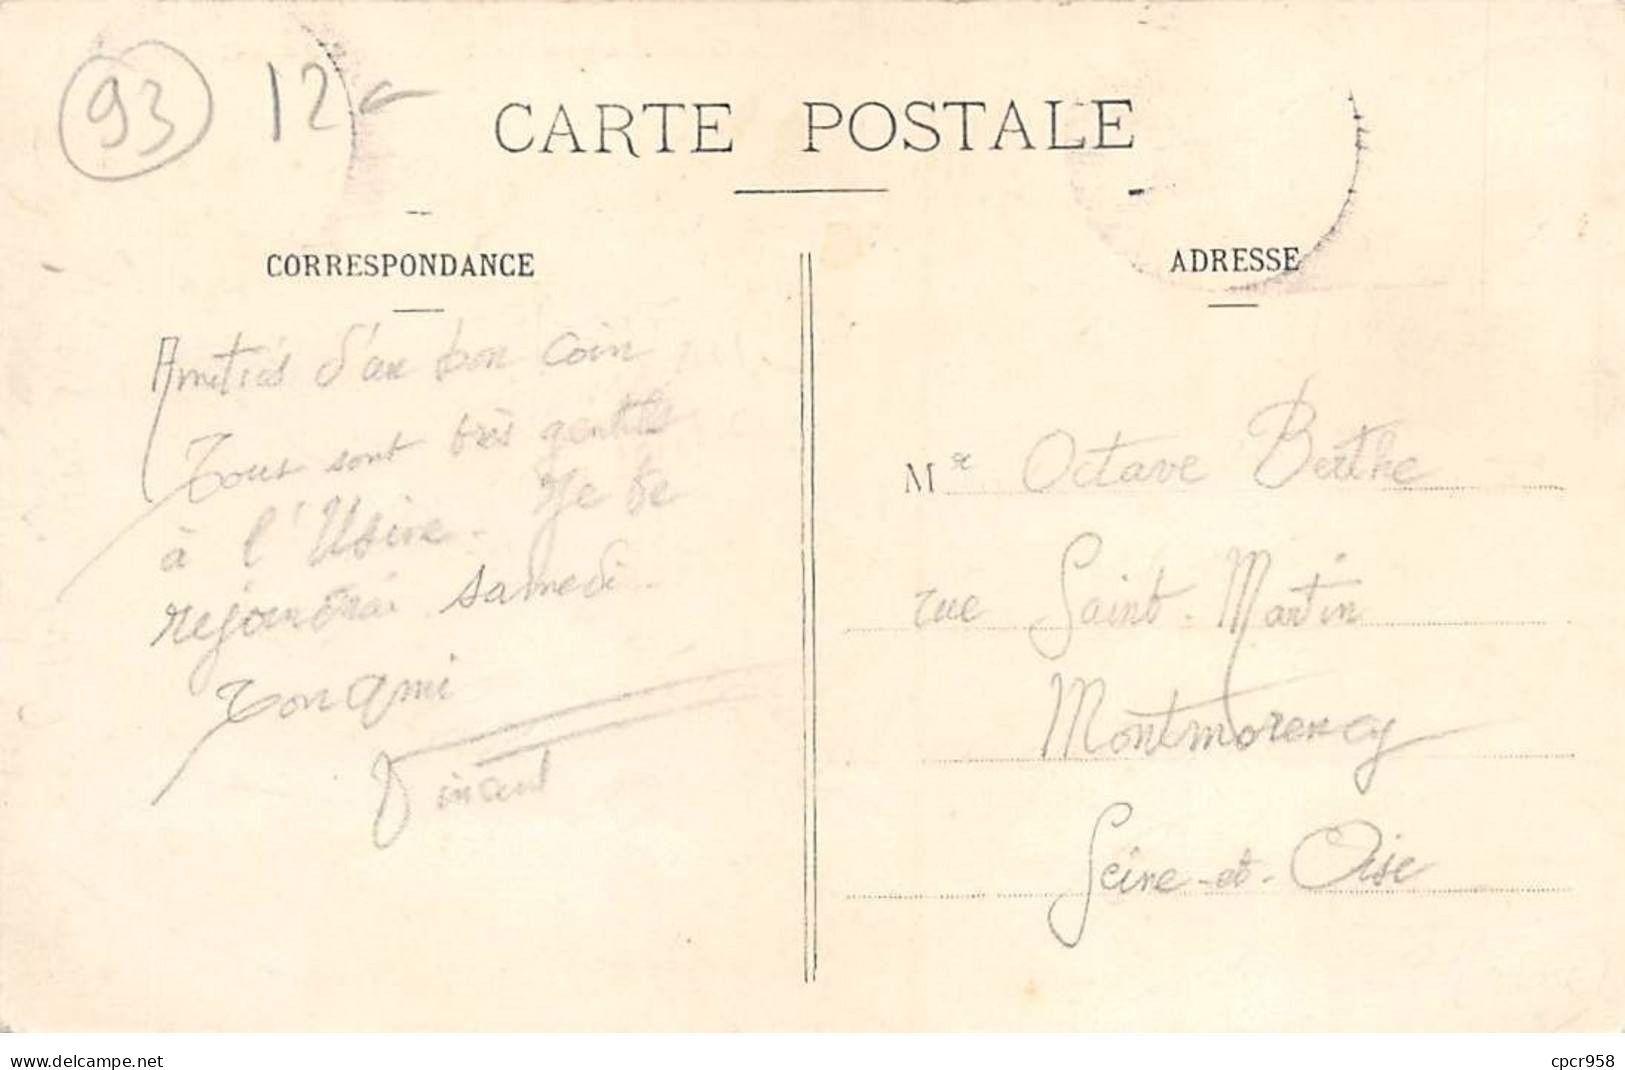 93 12
CARTE POSTALE
CORRESPONDANCE
ADRESSE
Amitiés d'un bon coin
Tous sont très gentils
à l'Usine. Je te
rejoindrai samedi.
Ton ami
Vincent
Mr Octave Berthe
rue Saint-Martin
Montmorency
Seine-et-Oise
www.delcampe.net
cpcr958